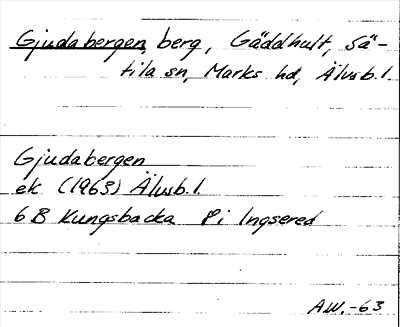 Gjudabergen, berg, Gäddhult, Sä-
tila sn, Marks hd, Älvsb.l.
Gjudabergen
ek (1963) Älvsb.l.
6 B Kungsbacka 8 i Ingsered
A.W.-63